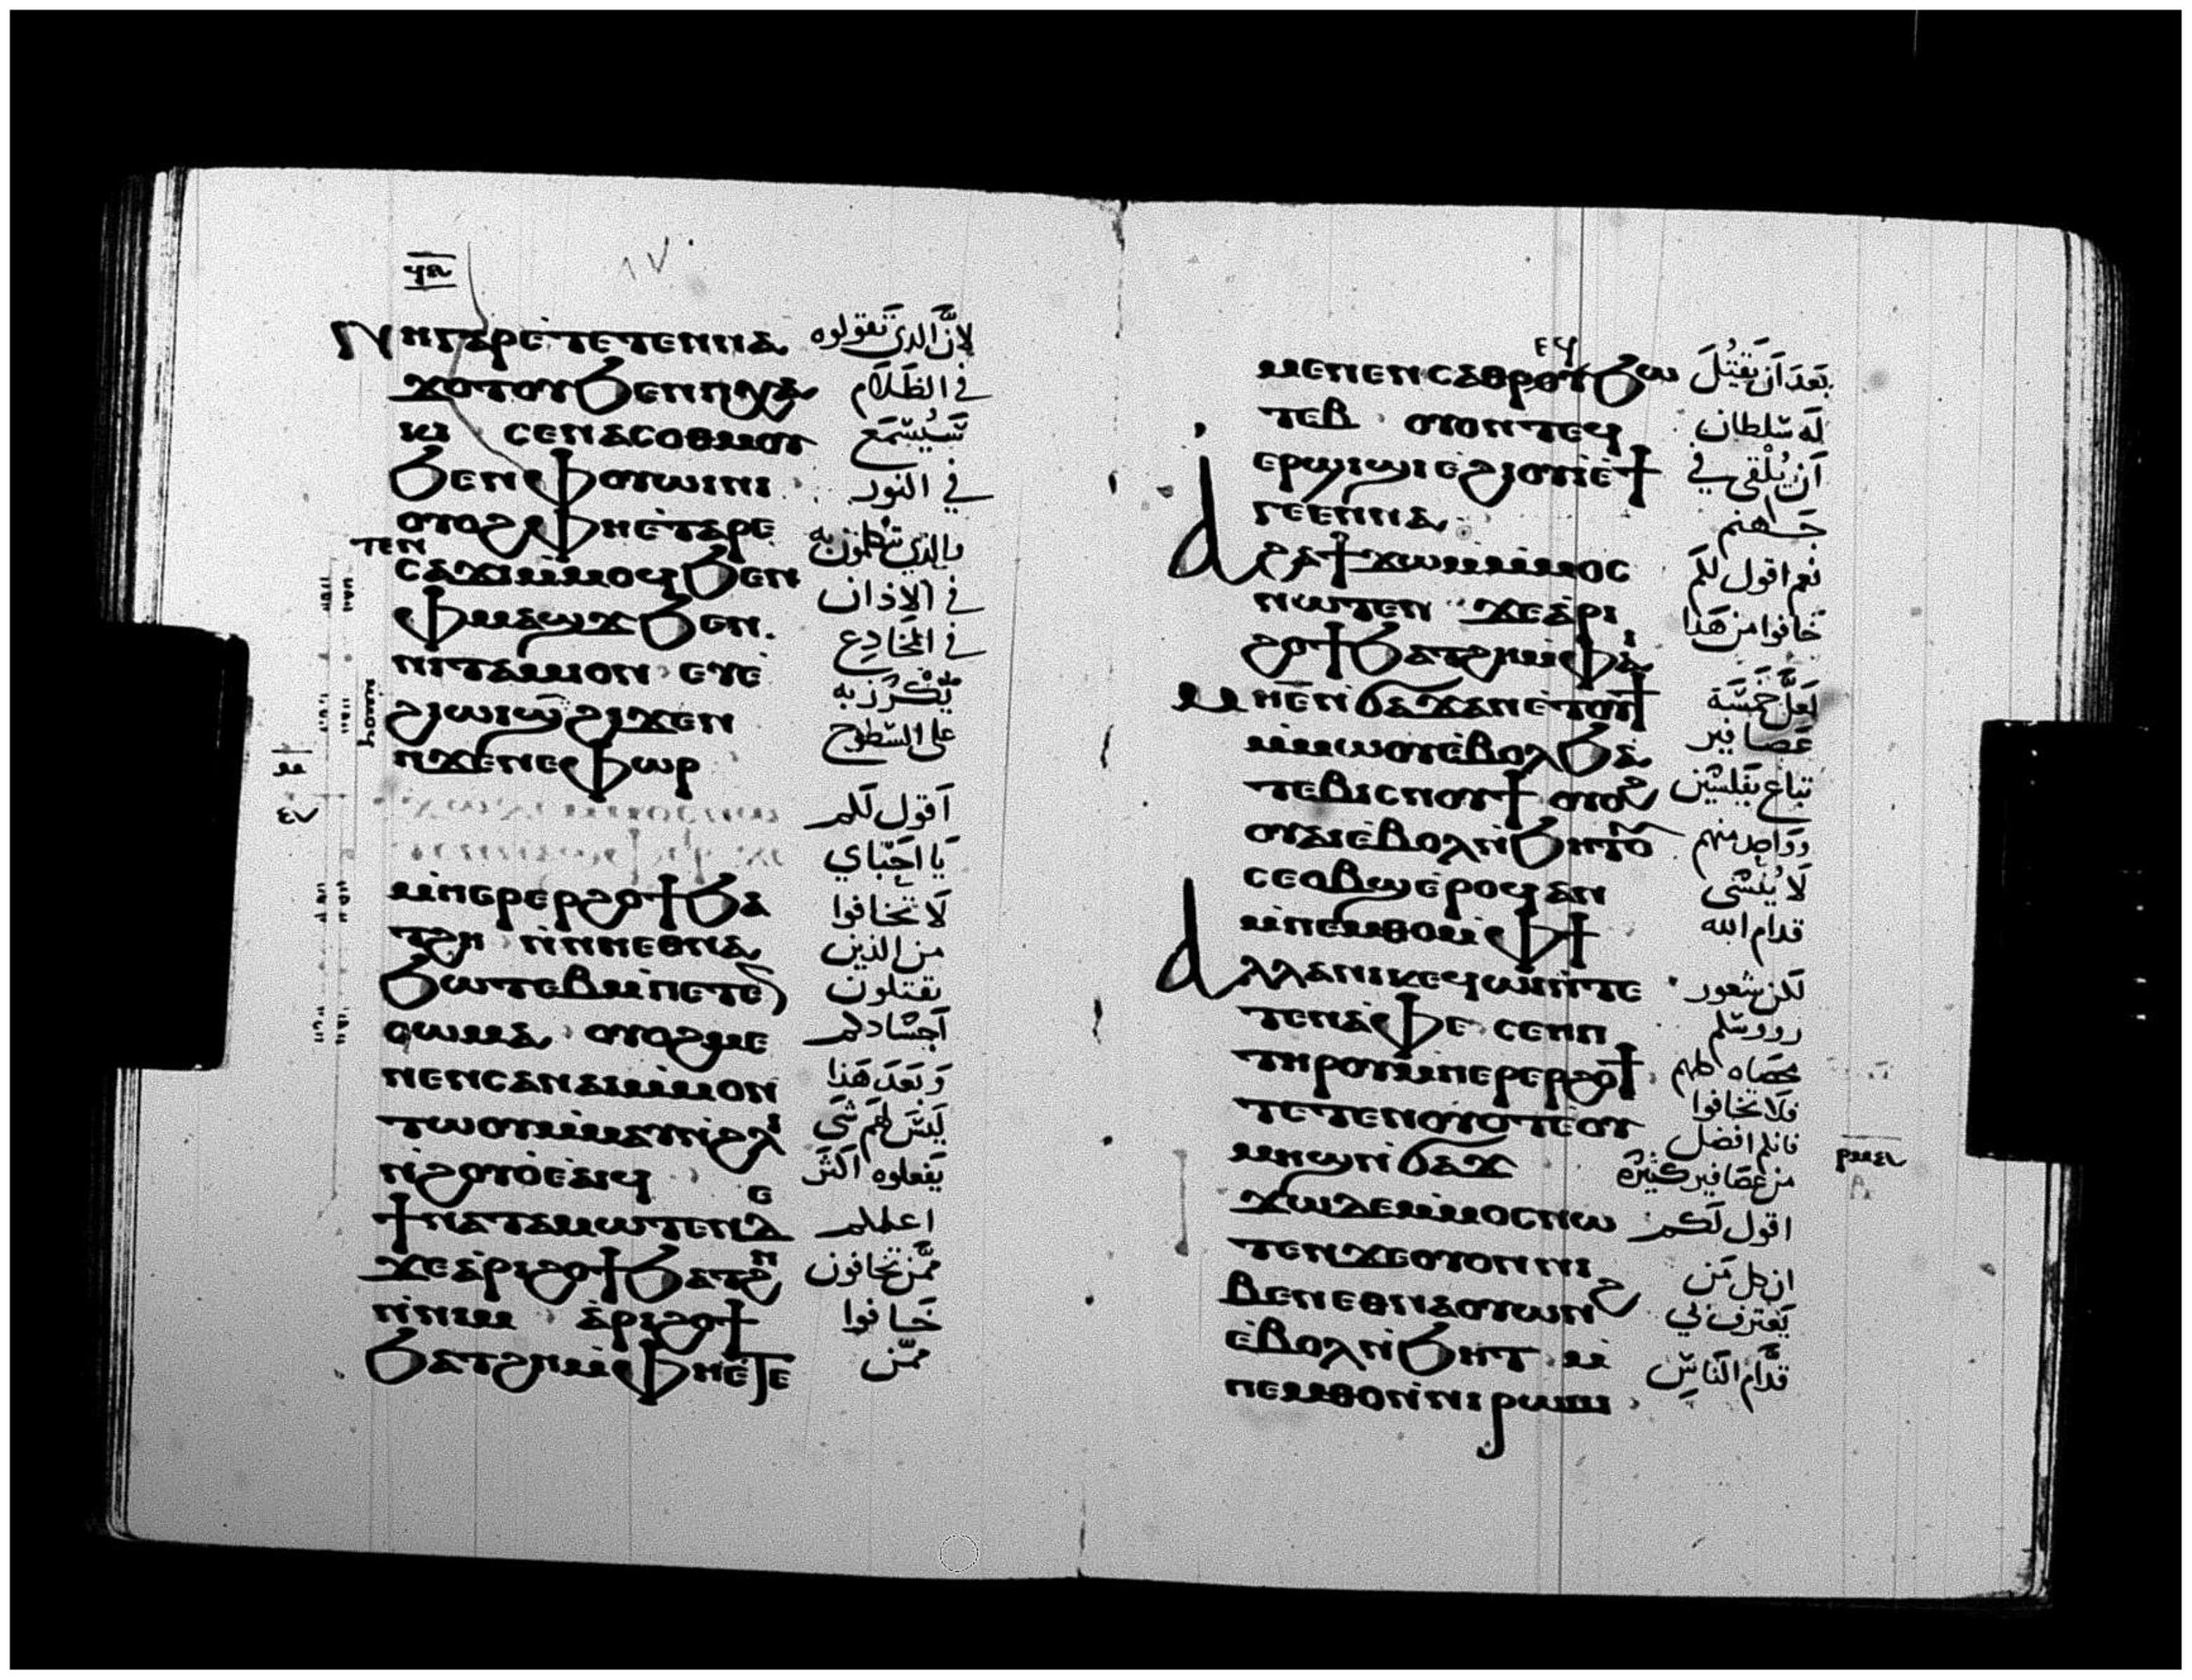 ⲛⲏⲉⲧⲁⲣⲉⲧⲉⲧⲉⲛⲛⲁ لانّ الذي تقولوه
ϫⲟⲧⲟⲩϧⲉⲛⲡⲭⲁ في الظلام
ⲕⲓ ⲥⲉⲛⲁⲥⲟⲑⲙⲟⲩ
ϧⲉⲛⲫⲟⲩⲱⲓⲛⲓ في النور
ⲟⲩⲟϩⲫⲏⲉⲧⲁⲣⲉ
ⲧⲉⲛ
ⲥⲁϫⲓⲙⲙⲟϥϧⲉⲛ في الاذان
ⲫⲙⲁϣϫϧⲉⲛ في المخادع
ⲛⲓⲧⲁⲙⲓⲟⲛ ⲉⲩⲉ يكرز به
ϩⲓⲱⲓϣϩⲓϫⲉⲛ على السطوح
ⲛϫⲉⲛⲉⲫⲱⲣ
اقول لكم
يا احباي
ⲙⲡⲉⲣⲉⲣϩⲟϯϧⲁ لا تخافوا
ⲧϩⲏ ⲛⲛⲏⲉⲑⲛⲁ من الذين
ϧⲱⲧⲉⲃⲙⲡⲉⲧⲉⲛ يقتلون
ⲥⲱⲙⲁ ⲟⲩⲟϩⲙⲉ اجسادكم
ⲛⲉⲛⲥⲁⲛⲁⲓⲙⲙⲟⲛ وبعد هذا
ⲧⲱⲟⲩⲙⲙⲁⲩⲛϩⲗⲓ ليس لهم شي
ⲛϩⲟⲩⲟⲉⲁⲓϥ يفعلوه اكثر
ϯⲛⲁⲧⲁⲙⲱⲧⲉⲛⲇⲉ اعلمكم
ϫⲉⲁⲣⲓϩⲟϯϧⲁⲧϩⲏ ممّن تخافون
ⲛⲛⲓⲙ ⲁⲣⲓϩⲟϯ خافوا
ϧⲁⲧϩⲏⲙⲫⲏⲉⲧⲉ ممّن
ⲙⲉⲛⲉⲛⲥⲁⲑⲣⲟⲩϧⲱ بعد ان يقتل
ⲧⲉⲃ ⲟⲩⲟⲛⲧⲉϥ له سلطان
ⲉⲣϣⲓϣⲓⲉϩⲓⲟⲩⲓⲉϯ ان يلقى في
ⲅⲉⲉⲛⲛⲁ جهنم
ⲁϩⲁϯϫⲱⲙⲙⲟⲥ نعم اقول لكم
ⲛⲱⲧⲉⲛ ϫⲉⲁⲣⲓ خافوا من هذا
ϩⲟϯϧⲁⲧϩⲏⲙⲫⲁⲓ
ⲙⲏⲉⲛϭⲁϫⲁⲛⲉⲧⲟⲩϯ لعل خمسة
ⲙⲙⲱⲟⲩⲉⲃⲟⲗϧⲁ عصافير
ⲧⲉⲃⲓⲥⲛⲟⲩϯ ⲟⲩⲟϩ تباع بفلسين
ⲟⲩⲁⲓⲉⲃⲟⲗⲛϧⲏⲧⲟⲩ وواحد منهم
ⲥⲉⲟⲃϣⲉⲣⲟϥⲁⲛ لا يُنسى
ⲙⲡⲉⲙⲑⲟⲙⲫϯ قدام الله
ⲁⲗⲗⲁⲛⲓⲕⲉϥⲱⲓⲛⲧⲉ لكن شعور
ⲧⲉⲛⲁⲫⲉ ⲥⲉⲏⲡ رووسكم
ⲧⲏⲣⲟⲩⲙⲡⲉⲣⲉⲣϩⲟϯ محصاه كلهم
فلا تخافوا
ⲧⲉⲧⲉⲛⲟⲩⲟⲧⲉⲟⲩ فانكم افضل
ⲙⲏϣⲛϭⲁϫ من عصافير كثيرة
ϫⲱⲇⲉⲙⲙⲟⲥⲛⲱ اقول لكم
ⲧⲉⲛϫⲉⲟⲩⲟⲛⲛⲓ ان كل من
ⲃⲉⲛⲉⲑⲛⲁⲟⲩⲱⲛϩ يعترف لي
ⲉⲃⲟⲗⲛϧⲏⲧ ⲙ قدّام الناس
ⲡⲉⲙⲑⲟⲛⲛⲓⲣⲱⲙⲓ